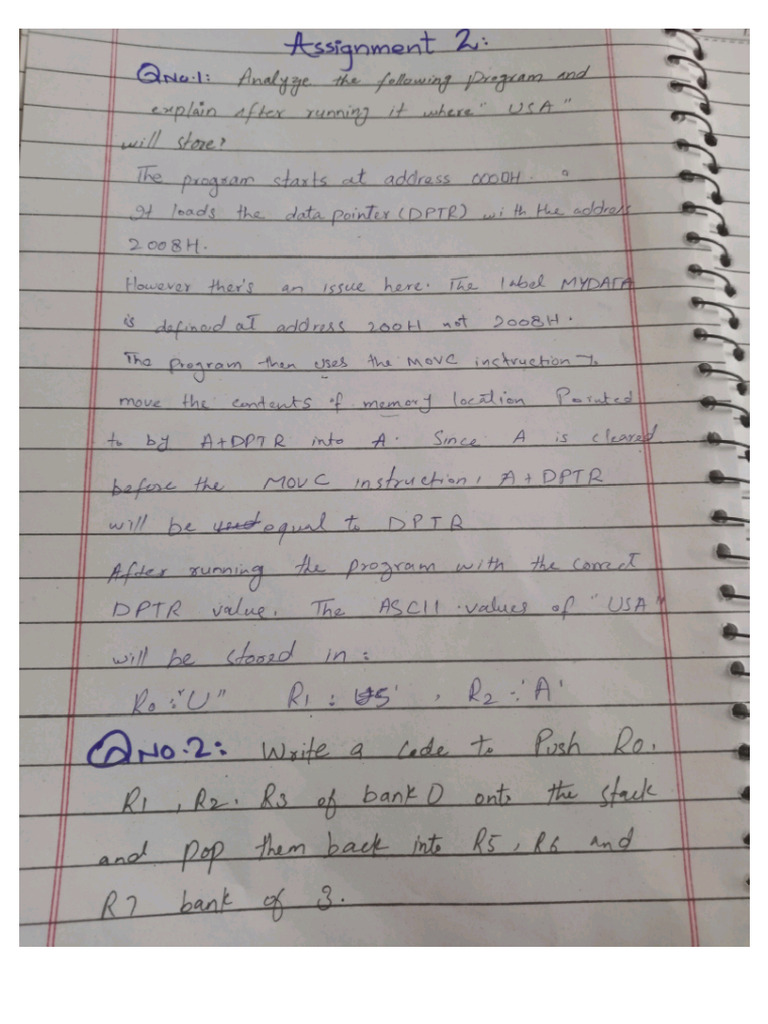 Assignment 2:
QNo.1: Analyze the following program and
explain after running it where "USA"
will store?
The program starts at address 0000H.
It loads the data pointer (DPTR) with the address
2008H.
However ther's an issue here. The label MYDATA
is defined at address 200H not 2008H.
The program then uses the MOVC instruction to
move the contents of memory location Pointed
to by A+DPTR into A. Since A is cleared
before the MOVC instruction, A+DPTR
will be equal to DPTR
After running the program with the correct
DPTR value. The ASCII values of "USA"
will be stored in:
R0: "U" R1: 'S' , R2: 'A'
QNO.2: Write a code to Push R0,
R1, R2, R3 of bank 0 onto the stack
and pop them back into R5, R6 and
R7 bank of 3.